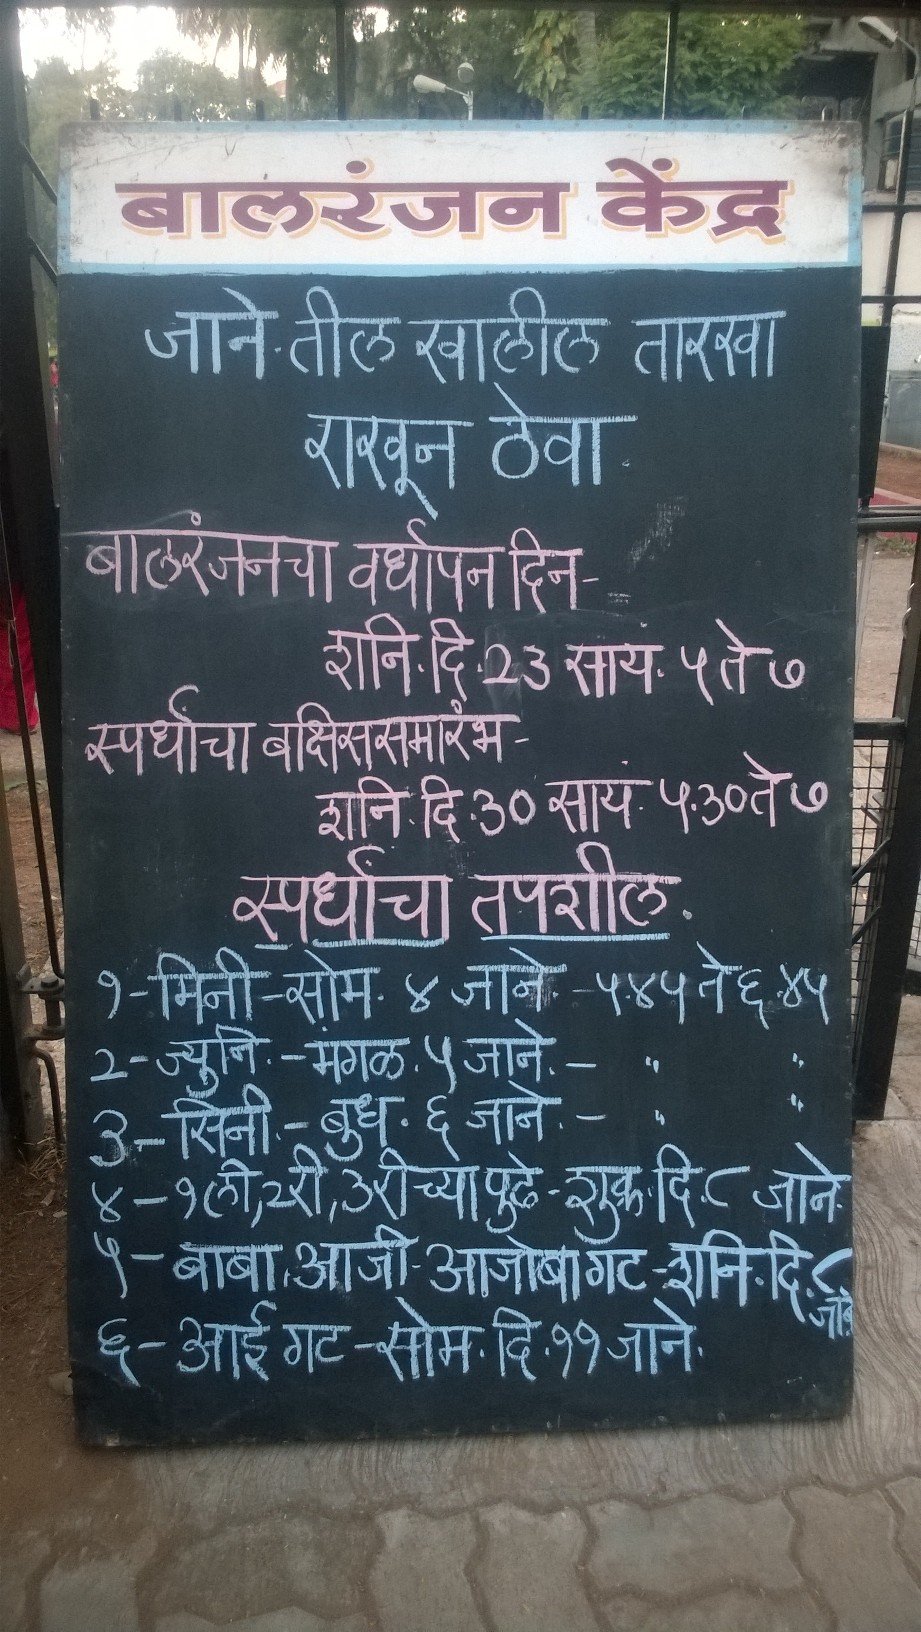 बालरंजन केंद्र
जाने. तील खालील तारखा
राखून ठेवा.
बालरंजनचा वर्धापन दिन-
शनि. दि. २३ सायं. ५ ते ७
स्पर्धांचा बक्षिससमारंभ-
शनि. दि. ३० सायं. ५.३० ते ७
स्पर्धांचा तपशील.
१-मिनी-सोम. ४ जाने. - ५.४५ ते ६.४५
२- ज्युनि. - मंगळ. ५ जाने. - " "
३- सिनी. - बुध. ६ जाने. - " "
४ - १ली, २री, ३रीच्यापुढे - शुक्र. दि. ८ जाने.
५ - बाबा, आजी-आजोबा गट - शनि. दि.
जाने
६ - आई गट - सोम. दि. ११ जाने.